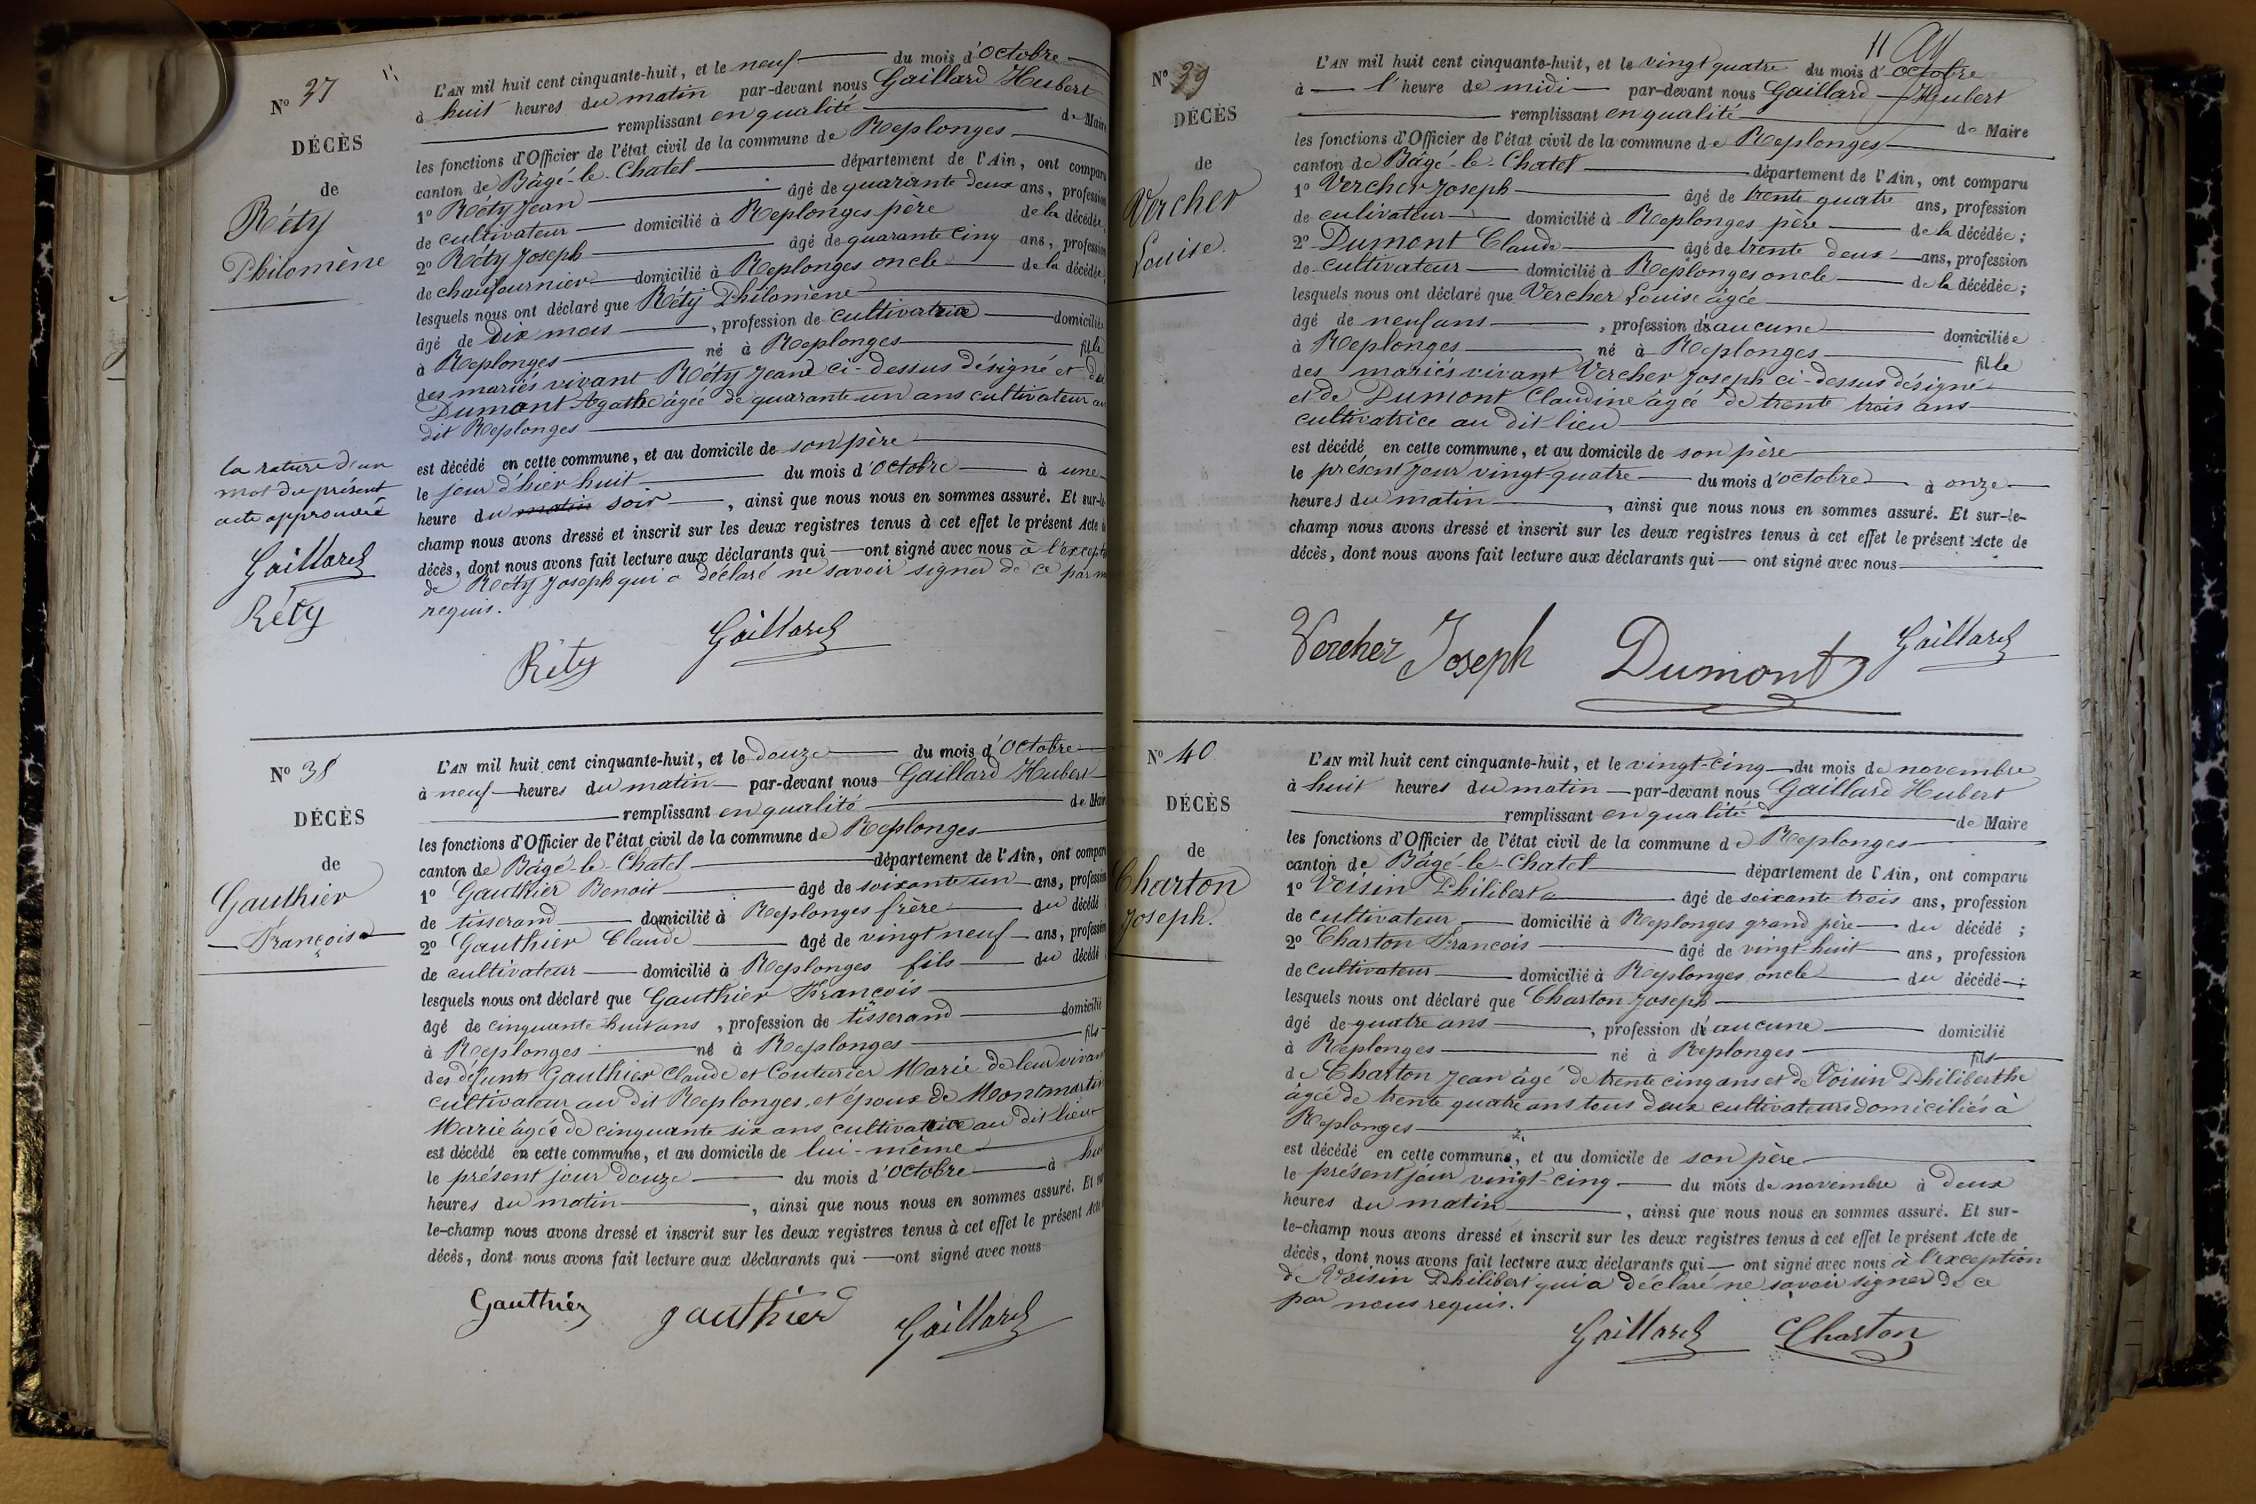 N° 37
DÉCÈS
de
Réty
Philomène
L'AN mil huit cent cinquante-huit, et le neuf du mois d'Octobre
à huit heures du matin par-devant nous Gaillard Hubert
remplissant en qualité de Maire
les fonctions d'Officier de l'état civil de la commune de Replonges
canton de Bâgé-le-Chatel département de l'Ain, ont comparu
1° Réty Jean âgé de quarante deux ans, profession
de cultivateur domicilié à Replonges père de la décédée;
2° Réty Joseph âgé de quarante cinq ans, profession
de chaufournier domicilié à Replonges oncle de la décédée;
lesquels nous ont déclaré que Réty Philomène
âgé de dix mois, profession de cultivatrice domiciliée
à Replonges né à Replonges fille
des mariés vivant Réty Jean ci-dessus désigné et de
Dumont Agathe âgée de quarante un ans cultivateur au
dit Replonges
est décédé en cette commune, et au domicile de son père
le jour d'hier huit du mois d'Octobre à une
heure du matin soir, ainsi que nous nous en sommes assuré. Et sur-le-
champ nous avons dressé et inscrit sur les deux registres tenus à cet effet le présent Acte de
décès, dont nous avons fait lecture aux déclarants qui ont signé avec nous à l'except
de Réty Joseph qui a déclaré ne savoir signer de ce par n
requis.
la rature d'un
mot du présent
acte approuvée
Gaillard
Réty
Réty Gaillard
N° 38
DÉCÈS
de
Gauthier
François
L'AN mil huit cent cinquante-huit, et le douze du mois d'Octobre
à neuf heures du matin par-devant nous Gaillard Hubert
remplissant en qualité de Maire
les fonctions d'Officier de l'état civil de la commune de Replonges
canton de Bâgé-le-Chatel département de l'Ain, ont comparu
1° Gauthier Benoit âgé de soixante un ans, profession
de tisserand domicilié à Replonges frère du décédé
2° Gauthier Claude âgé de vingt neuf ans, profession
de cultivateur domicilié à Replonges fils du décédé
lesquels nous ont déclaré que Gauthier François
âgé de cinquante huit ans, profession de tisserand domicilié
à Replonges né à Replonges fils
des défunts Gauthier Claude et Couturier Marie de leur vivant
cultivateur au dit Replonges, et époux de Montmartin
Marie âgée de cinquante six ans cultivatrice au dit lieu
est décédé en cette commune, et au domicile de lui-même
le présent jour douze du mois d'Octobre à hu
heures du matin, ainsi que nous nous en sommes assuré. Et sur
le-champ nous avons dressé et inscrit sur les deux registres tenus à cet effet le présent Acte
décès, dont nous avons fait lecture aux déclarants qui ont signé avec nous
Gauthier gauthier Gaillard
11
N° 39
DÉCÈS
de
Vercher
Louise.
L'AN mil huit cent cinquante-huit, et le vingt quatre du mois d'octobre
à l'heure de midi par-devant nous Gaillard Hubert
remplissant en qualité de Maire
les fonctions d'Officier de l'état civil de la commune de Replonges
canton de Bâgé-le-Chatel département de l'Ain, ont comparu
1° Vercher Joseph âgé de trente quatre ans, profession
de cultivateur domicilié à Replonges père de la décédée;
2° Dumont Claude âgé de trente deux ans, profession
de cultivateur domicilié à Replonges oncle de la décédée;
lesquels nous ont déclaré que Vercher Louise âgée
âgé de neuf ans, profession d'aucune domiciliée
à Replonges né à Replonges fille
des mariés vivant Vercher Joseph ci-dessus désigné
et de Dumont Claudine âgée de trente trois ans
cultivatrice au dit lieu
est décédé en cette commune, et au domicile de son père
le présent jour vingt-quatre du mois d'octobre à onze
heures du matin, ainsi que nous nous en sommes assuré. Et sur-le-
champ nous avons dressé et inscrit sur les deux registres tenus à cet effet le présent Acte de
décès, dont nous avons fait lecture aux déclarants qui ont signé avec nous
Vercher Joseph Dumont Gaillard
N° 40
DÉCÈS
de
Charton
Joseph.
L'AN mil huit cent cinquante-huit, et le vingt-cinq du mois de novembre
à huit heures du matin par-devant nous Gaillard Hubert
remplissant en qualité de Maire
les fonctions d'Officier de l'état civil de la commune de Replonges
canton de Bâgé-le-Chatel département de l'Ain, ont comparu
1° Voisin Philibert âgé de soixante trois ans, profession
de cultivateur domicilié à Replonges grand père du décédé;
2° Charton François âgé de vingt huit ans, profession
de cultivateur domicilié à Replonges oncle du décédé;
lesquels nous ont déclaré que Charton Joseph
âgé de quatre ans, profession d'aucune domicilié
à Replonges né à Replonges fils
de Charton Jean âgé de trente cinq ans et de Voisin Philiberthe
âgée de trente quatre ans tous deux cultivateurs domiciliés à
Replonges
est décédé en cette commune, et au domicile de son père
le présent jour vingt-cinq du mois de novembre à deux
heures du matin, ainsi que nous nous en sommes assuré. Et sur-
le-champ nous avons dressé et inscrit sur les deux registres tenus à cet effet le présent Acte de
décès, dont nous avons fait lecture aux déclarants qui ont signé avec nous à l'exception
de Voisin Philibert qui a déclaré ne savoir signer de ce
par nous requis.
Gaillard Charton